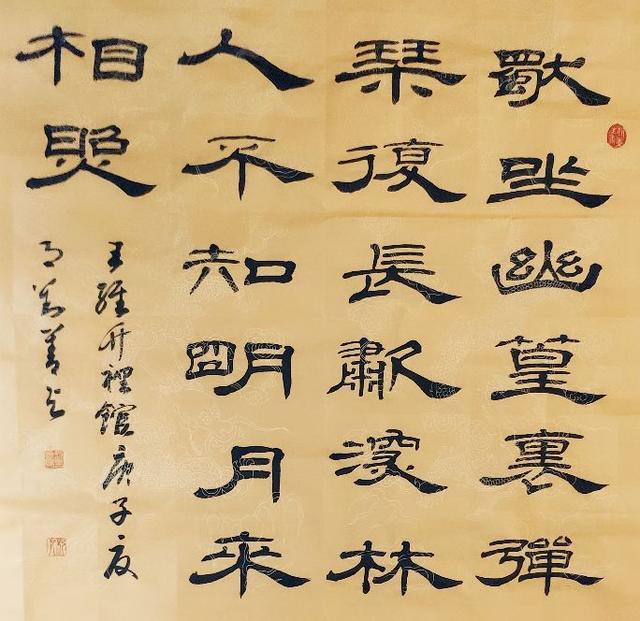 獨坐幽篁裏彈
琴復長歗深林
人不知明月來
相照
王維竹裡館庚子夏